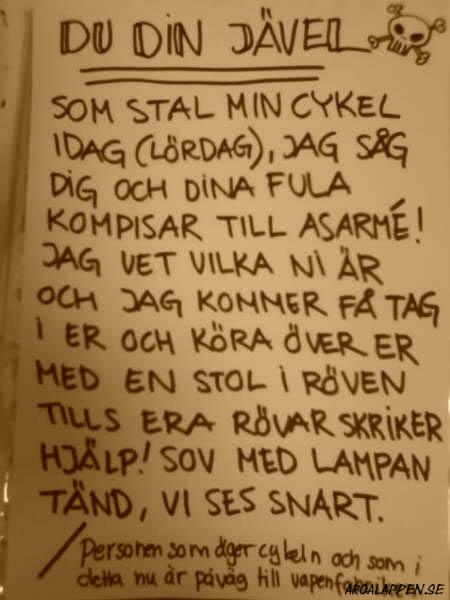 DU DIN JÄVEL
SOM STAL MIN CYKEL
IDAG (LÖRDAG), JAG SÅG
DIG OCH DINA FULA
KOMPISAR TILL ASARMÉ!
JAG VET VILKA NI ÄR
OCH JAG KOMMER FÅ TAG
I ER OCH KÖRA ÖVER ER
MED EN STOL I RÖVEN
TILLS ERA RÖVAR SKRIKER
HJÄLP! SOV MED LAMPAN
TÄND, VI SES SNART.
/ Personen som äger cykeln och som i
detta nu är påväg till vapenfabriken.
ARGALAPPEN.SE